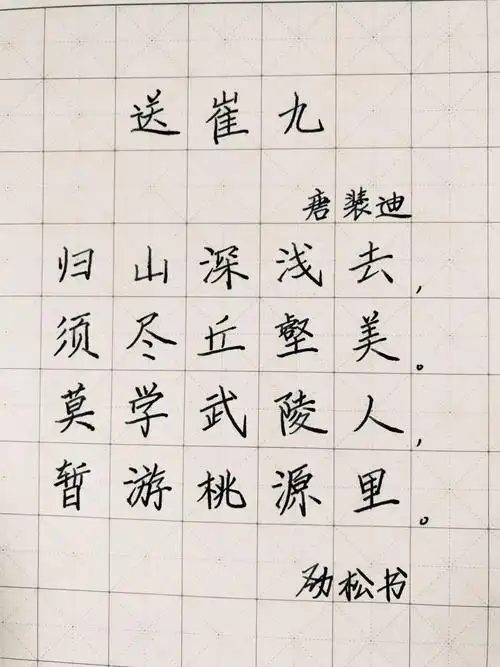 送崔九
唐裴迪
归山深浅去,
须尽丘壑美。
莫学武陵人,
暂游桃源里。
劲松书